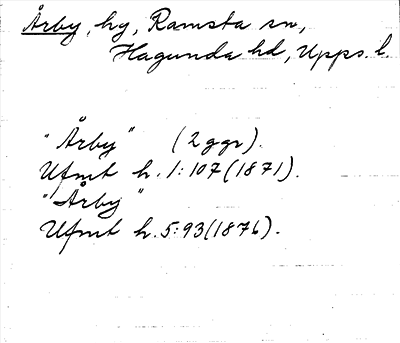 Årby, by, Ramsta sn,
Hagunda hd, Upps. l.
"Årby" (2 ggr).
Ufmt h. 1:107 (1871).
"Årby"
Ufmt h. 5:93 (1876).